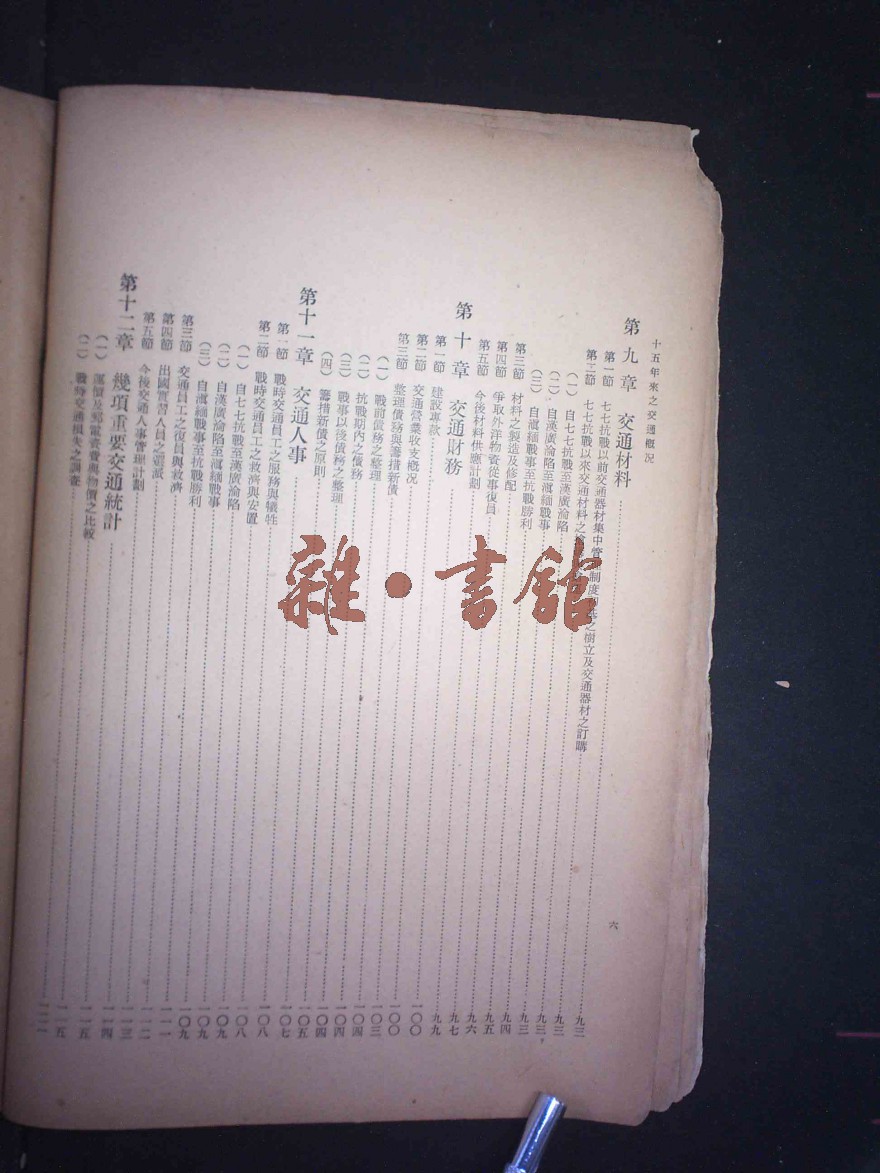 十五年來之交通概況
六
第九章 交通材料 九三
第一節 七七抗戰以前交通器材集中管 制度 之樹立及交通器材之訂購 九三
第二節 七七抗戰以來交通材料之 九三
(一) 自七七抗戰至漢廣淪陷 九三
(二) 自漢廣淪陷至滇緬戰事 九四
(三) 自滇緬戰事至抗戰勝利 九五
第三節 材料之製造及修配 九六
第四節 爭取外洋物資從事復員 九七
第五節 今後材料供應計劃 九九
第十章 交通財務 一〇〇
第一節 建設專款 一〇〇
第二節 交通營業收支概況 一〇三
第三節 整理債務與籌措新債 一〇四
(一) 戰前債務之整理 一〇四
(二) 抗戰期內之債務 一〇四
(三) 戰事以後債務之整理 一〇五
(四) 籌措新債之原則 一〇七
第十一章 交通人事 一〇八
第一節 戰時交通員工之服務與犧牲 一〇八
第二節 戰時交通員工之救濟與安置 一〇九
(一) 自七七抗戰至漢廣淪陷 一〇九
(二) 自漢廣淪陷至滇緬戰事 一〇九
(三) 自滇緬戰事至抗戰勝利 一一一
第三節 交通員工之復員與救濟 一一二
第四節 出國實習人員之選派 一一三
第五節 今後交通人事管理計劃 一一四
第十二章 幾項重要交通統計 一一五
(一) 運價及郵電資費與物價之比較 一一五
(二) 戰時交通損失之調查 一二一
雜·書館